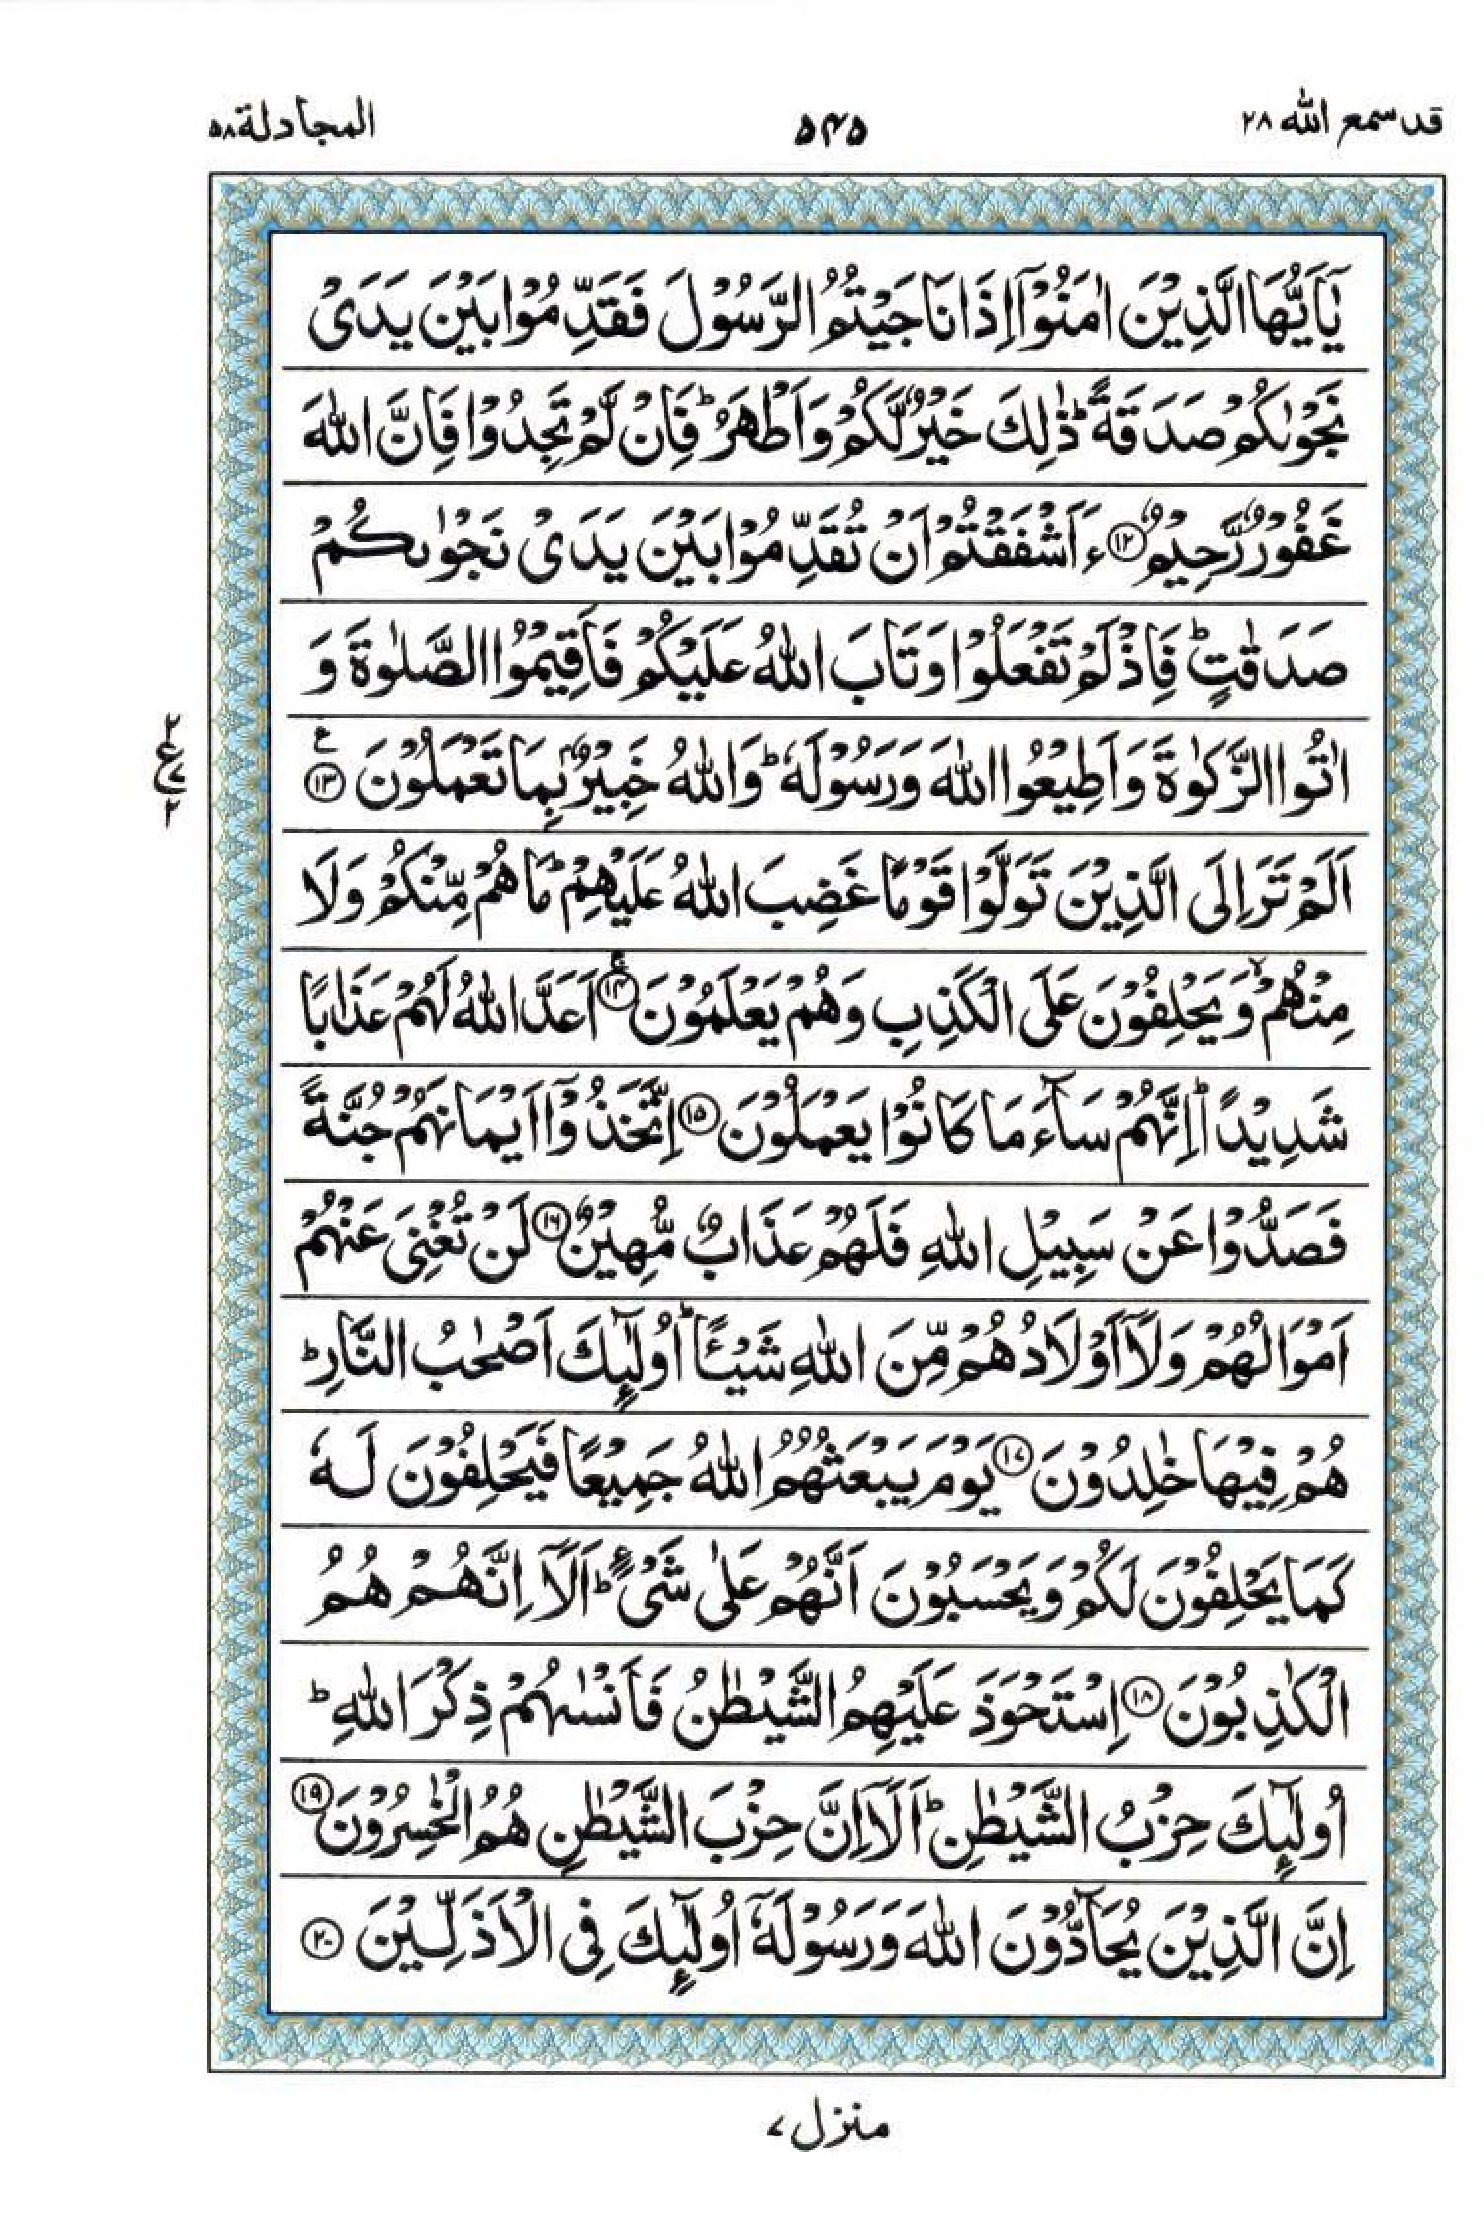 قد سمع الله ٢٨
٥٤٥
المجادلة ٥٨
يٰۤاَيُّهَا الَّذِيْنَ اٰمَنُوْۤا اِذَا نَاجَيْتُمُ الرَّسُوْلَ فَقَدِّمُوْا بَيْنَ يَدَىْ
نَجْوٰىكُمْ صَدَقَةً ؕ ذٰلِكَ خَيْرٌ لَّكُمْ وَاَطْهَرُ ؕ فَاِنْ لَّمْ تَجِدُوْا فَاِنَّ اللّٰهَ
غَفُوْرٌ رَّحِيْمٌ ﴿١٢﴾ ءَاَشْفَقْتُمْ اَنْ تُقَدِّمُوْا بَيْنَ يَدَىْ نَجْوٰىكُمْ
صَدَقٰتٍ ؕ فَاِذْ لَمْ تَفْعَلُوْا وَتَابَ اللّٰهُ عَلَيْكُمْ فَاَقِيْمُوا الصَّلٰوةَ وَ
اٰتُوا الزَّكٰوةَ وَاَطِيْعُوا اللّٰهَ وَرَسُوْلَهٗ ؕ وَاللّٰهُ خَبِيْرٌۢ بِمَا تَعْمَلُوْنَ ﴿١٣﴾ ع
٢
ع ٧
٢
اَلَمْ تَرَ اِلَى الَّذِيْنَ تَوَلَّوْا قَوْمًا غَضِبَ اللّٰهُ عَلَيْهِمْ ؕ مَا هُمْ مِّنْكُمْ وَلَا
مِنْهُمْ ۙ وَيَحْلِفُوْنَ عَلَى الْكَذِبِ وَهُمْ يَعْلَمُوْنَ ﴿١٤﴾ اَعَدَّ اللّٰهُ لَهُمْ عَذَابًا
شَدِيْدًا ؕ اِنَّهُمْ سَآءَ مَا كَانُوْا يَعْمَلُوْنَ ﴿١٥﴾ اِتَّخَذُوْۤا اَيْمَانَهُمْ جُنَّةً
فَصَدُّوْا عَنْ سَبِيْلِ اللّٰهِ فَلَهُمْ عَذَابٌ مُّهِيْنٌ ﴿١٦﴾ لَنْ تُغْنِىَ عَنْهُمْ
اَمْوَالُهُمْ وَلَاۤ اَوْلَادُهُمْ مِّنَ اللّٰهِ شَيْـًٔا ؕ اُولٰٓئِكَ اَصْحٰبُ النَّارِ ؕ
هُمْ فِيْهَا خٰلِدُوْنَ ﴿١٧﴾ يَوْمَ يَبْعَثُهُمُ اللّٰهُ جَمِيْعًا فَيَحْلِفُوْنَ لَهٗ
كَمَا يَحْلِفُوْنَ لَكُمْ وَيَحْسَبُوْنَ اَنَّهُمْ عَلٰى شَىْءٍ ؕ اَلَاۤ اِنَّهُمْ هُمُ
الْكٰذِبُوْنَ ﴿١٨﴾ اِسْتَحْوَذَ عَلَيْهِمُ الشَّيْطٰنُ فَاَنْسٰىهُمْ ذِكْرَ اللّٰهِ ؕ
اُولٰٓئِكَ حِزْبُ الشَّيْطٰنِ ؕ اَلَاۤ اِنَّ حِزْبَ الشَّيْطٰنِ هُمُ الْخٰسِرُوْنَ ﴿١٩﴾
اِنَّ الَّذِيْنَ يُحَآدُّوْنَ اللّٰهَ وَرَسُوْلَهٗۤ اُولٰٓئِكَ فِى الْاَذَلِّيْنَ ﴿٢٠﴾
منزل ٧